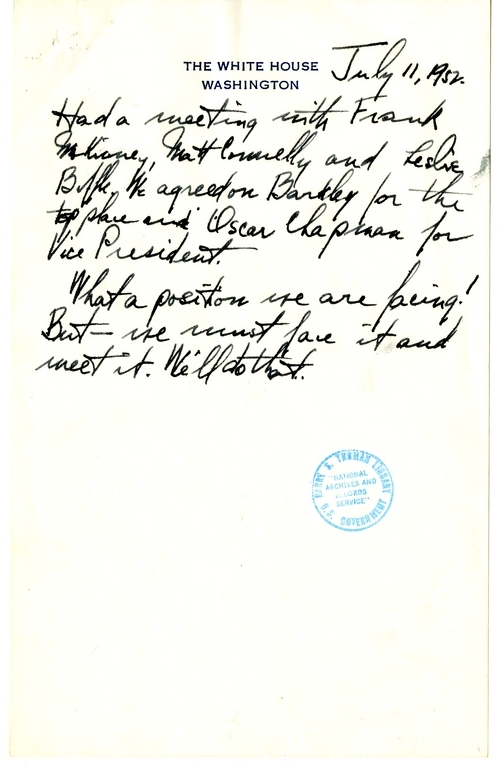 THE WHITE HOUSE
WASHINGTON
July 11, 1952.
Had a meeting with Frank
McKinney, Matt Connelly and Leslie
Biffle. We agreed on Barkley for the
top place and Oscar Chapman for
Vice President.
What a position we are facing!
But — we must face it and
meet it. We'll do that.
HARRY S. TRUMAN LIBRARY
"NATIONAL
ARCHIVES AND
RECORDS
SERVICE"
U.S. GOVERNMENT